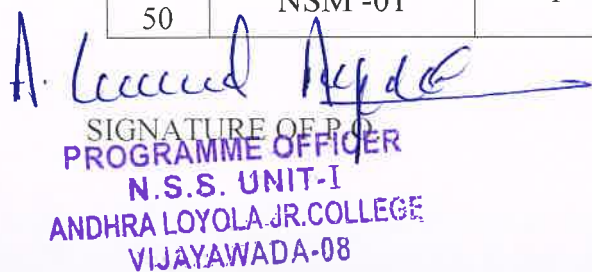 50 NSM -01
A.
SIGNATURE OF P.O
PROGRAMME OFFICER
N.S.S. UNIT-I
ANDHRA LOYOLA JR.COLLEGE
VIJAYAWADA-08